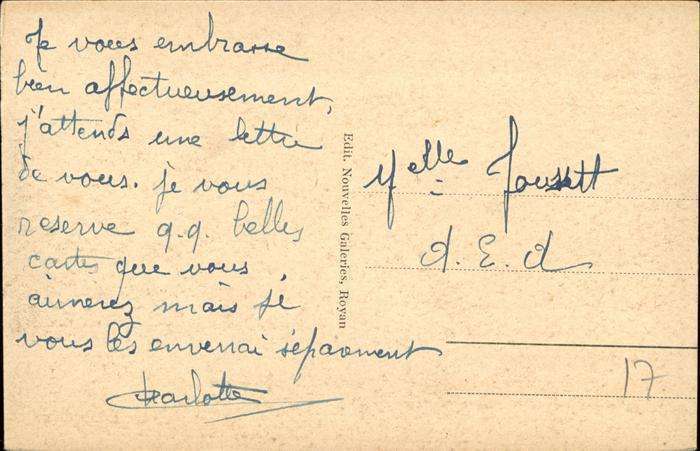 Je vous embrasse
bien affectueusement,
j'attends une lettre
de vous. je vous
reserve q.q. belles
cartes que vous
aimerez mais je
vous les enverrai séparement
Charlotte
Edit. Nouvelles Galeries, Royan
Melle
d. E. d
17